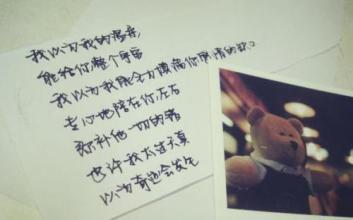 我以为我的温柔
能给你整个宇宙
我以为我能全力填满你感情的缺口
专心地陪在你左右
弥补他一切的错
也许我太过天真
以为奇迹会发生